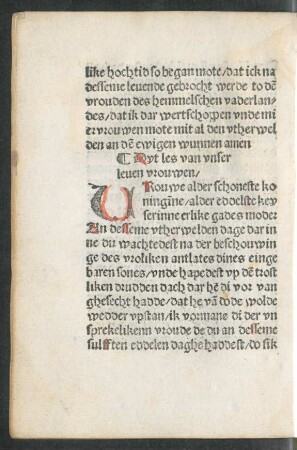 like hochtid so began mote/ dat ick na
desseme leuende gebrocht werde to dē
vrouden des hemmelschen vaderlan-
des/ dat ik dar wertschoppen vnde mi
ervrouwen mote mit al den vtherwel
den an dē ewigen wunnen amen
¶ Dyt les van vnser
leuen vrouwen/
VRouwe alder schoneste ko
ningīne/ alder eddelste key
serinne erlike gades moder
An desseme vtherwelden dage dar in
ne du wachtedest na der beschouwin
ge des vroliken antlates dines einge
baren sones/ vnde hapedest vp dē trost
liken drudden dach dar he di vor van
ghesecht hadde/ dat he vā dode wolde
wedder vpstan/ ik vormane di der vn
sprekelikenn vroude de du an desseme
sulfften eddelen daghe haddest/ do sik